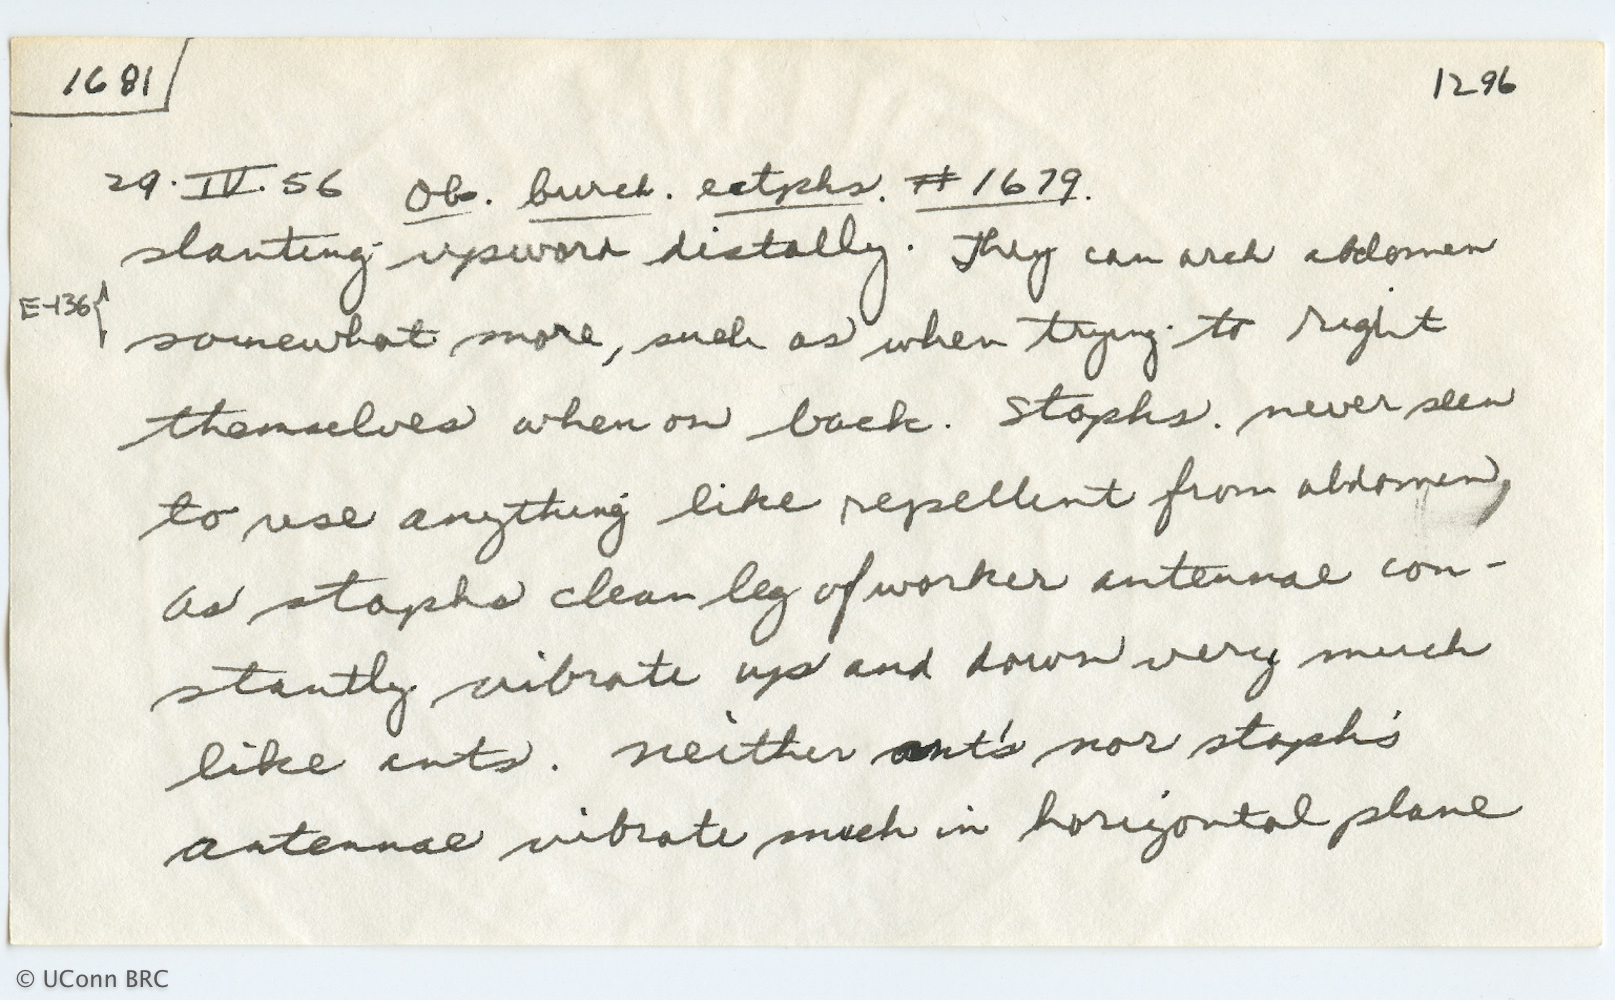 1681
1296
29. IV. 56 Ob. burch. ectphs. #1679.
slanting upword distally. They can arch abdomen
E-136{
somewhat more, such as when trying to right
themselves when on back. Staphs. never seen
to use anything like repellent from abdomen,
As staphs clean leg of worker antennae con-
stantly vibrate up and down very much
like ants. Neither ant's nor staph's
antennae vibrate much in horizontal plane
© UConn BRC